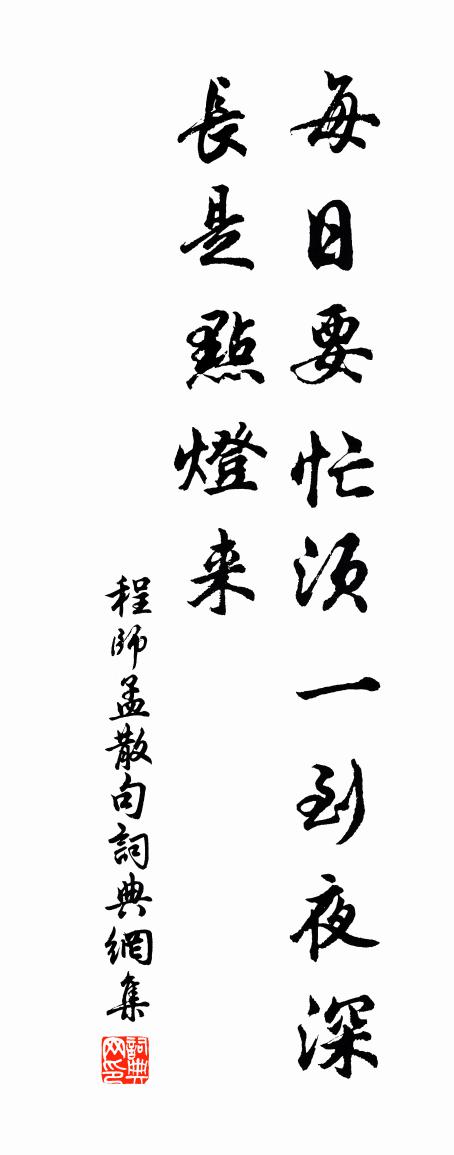 每日要忙須一到夜深
長是點燈来
程師孟散句詞典網集
詞典网印